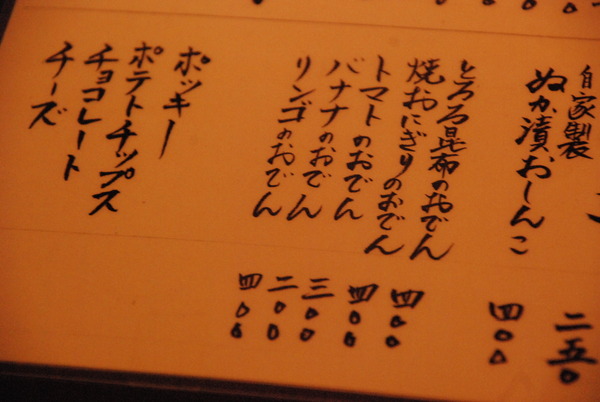 自家製
ぬか漬おしんこ
とろろ昆布のおでん
焼おにぎりのおでん
トマトのおでん
バナナのおでん
リンゴのおでん
ポッキー
ポテトチップス
チョコレート
チーズ
二五〇
四〇〇
四〇〇
四〇〇
三〇〇
二〇〇
四〇〇